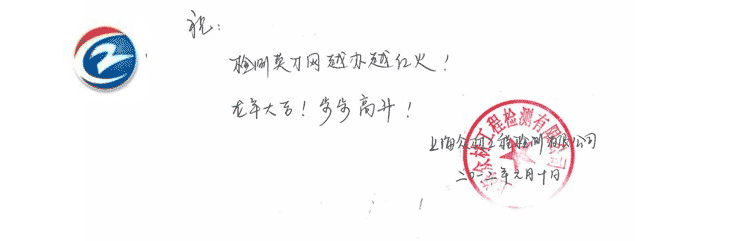 祝:
检测英才网越办越红火!
龙年大吉!步步高升!
上海众材工程检测有限公司
二〇一二年元月十日
上海众材工程检测有限公司